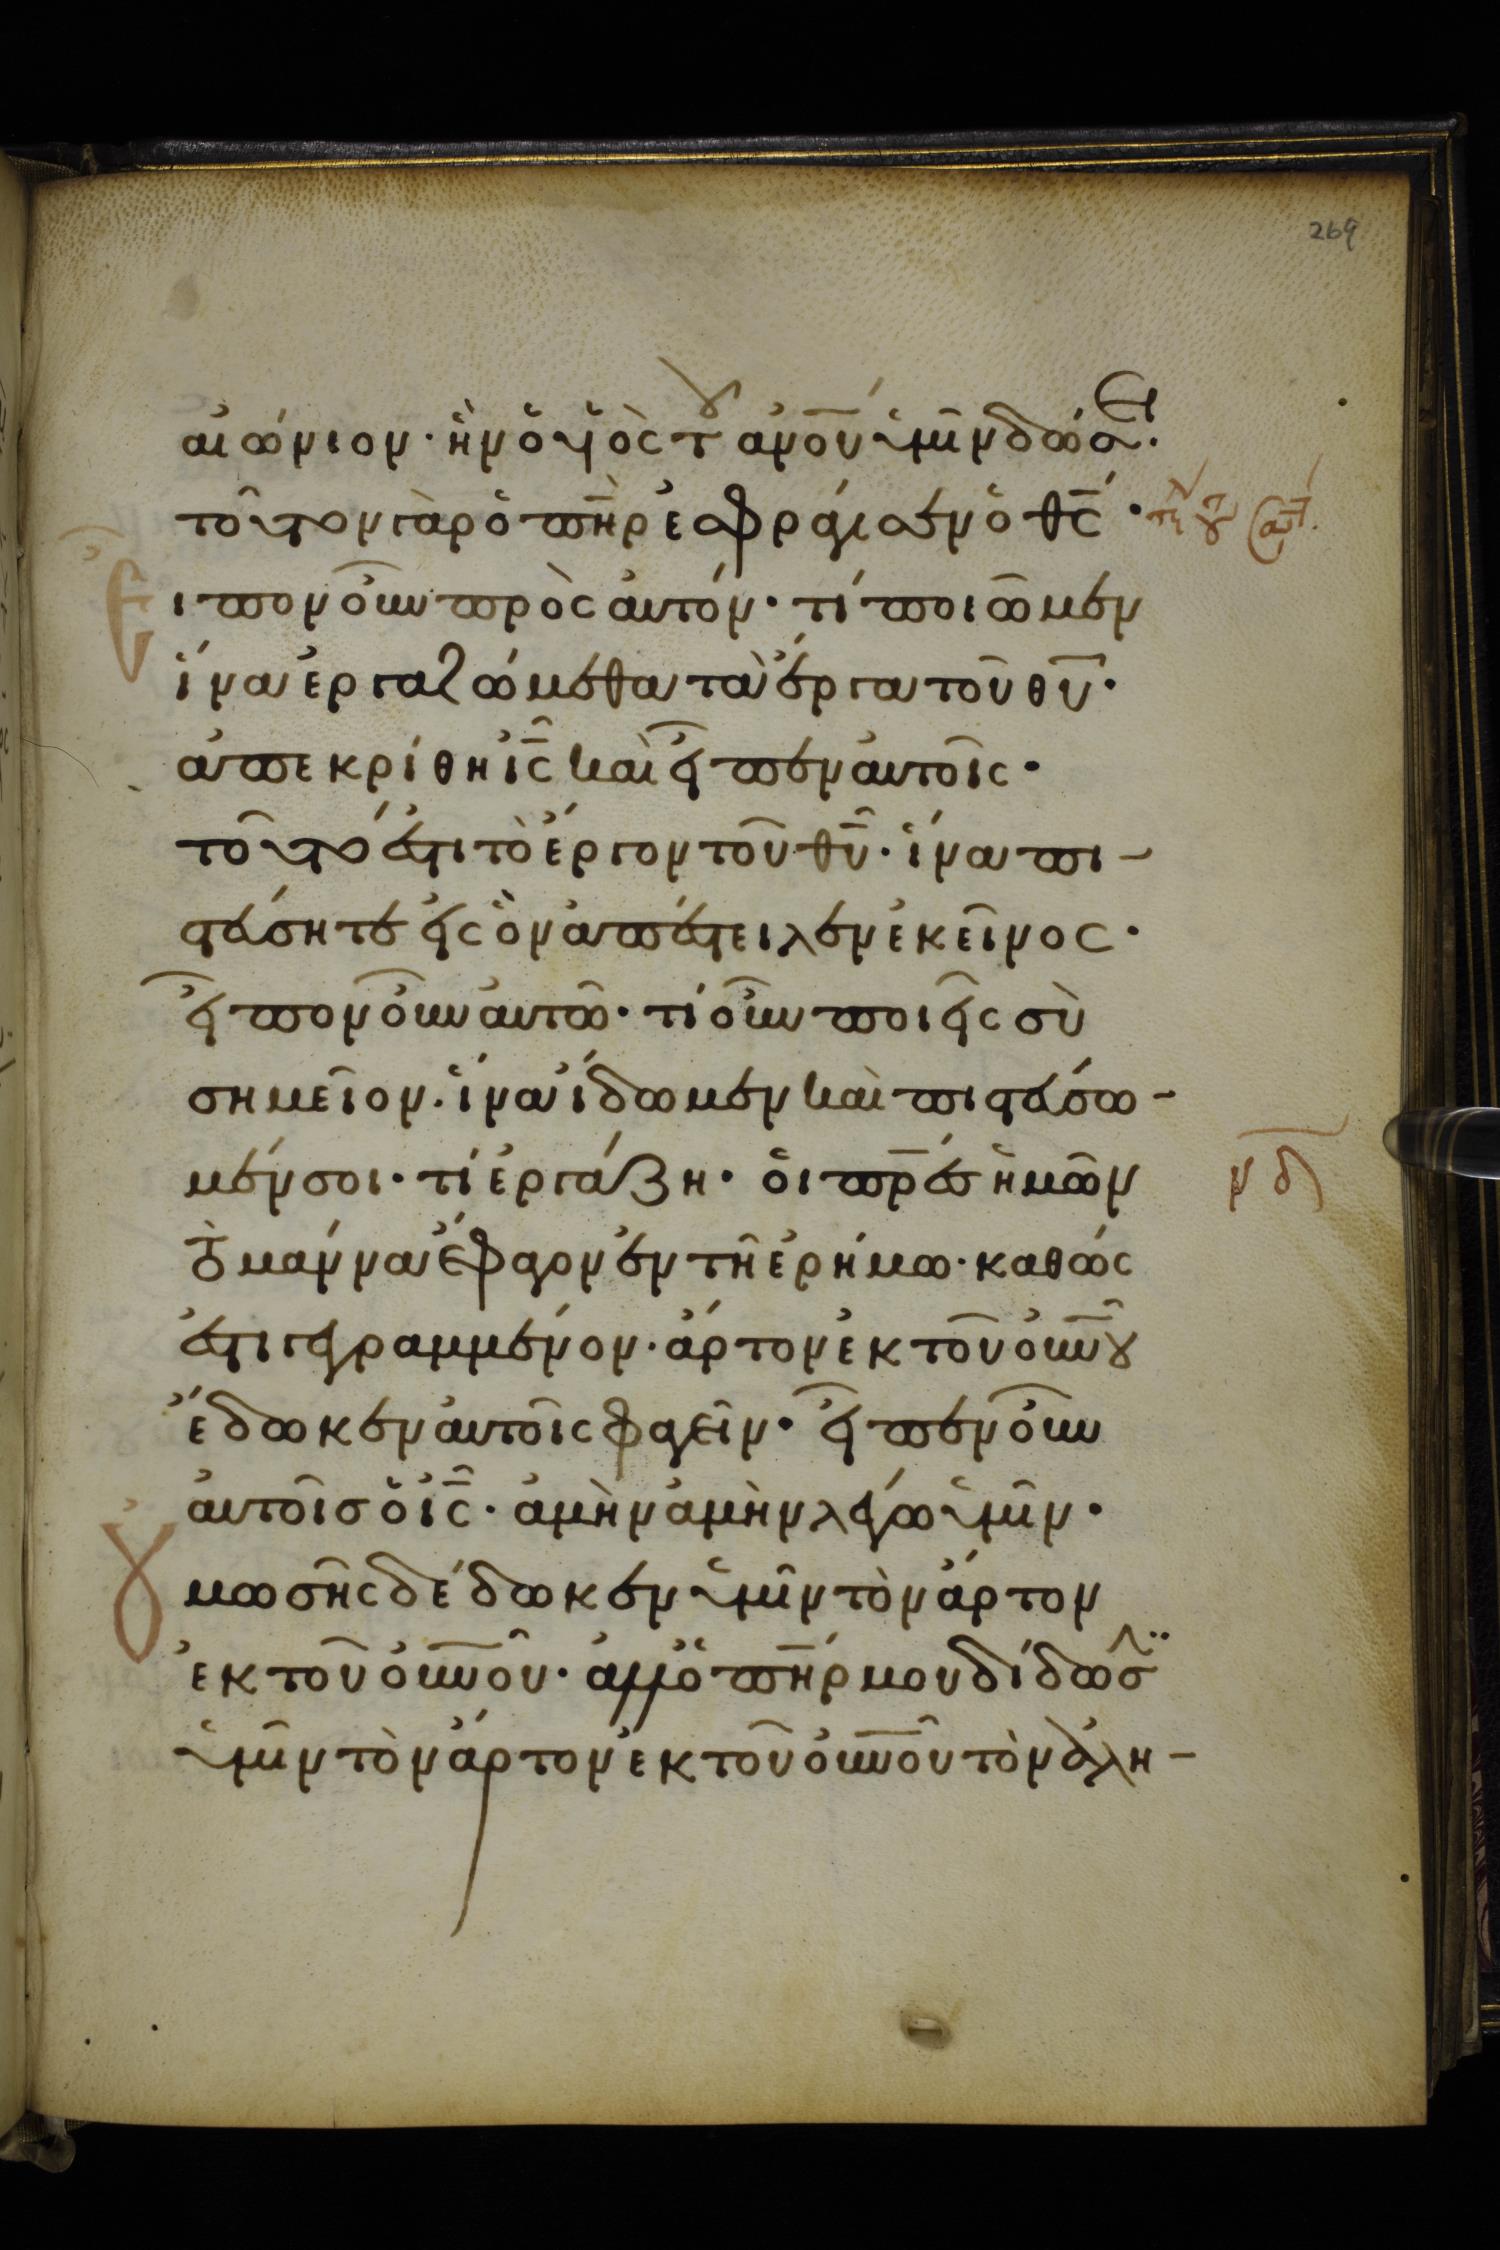 269
αἰώνιον· ἣν ὁ υἱὸς τοῦ ἀνοῦ ὑμῖν δώσει·
τοῦτον γὰρ ὁ πὴρ ἐσφράγισεν ὁ θς·
Εἶπον οὖν πρὸς αὐτόν· τί ποιῶμεν
ἵνα ἐργαζώμεθα τὰ ἔργα τοῦ θυ·
ἀπεκρίθη ἰς καὶ εἶπεν αὐτοῖς·
τοῦτό ἐστι τὸ ἔργον τοῦ θυ· ἵνα πι-
στεύσητε εἰς ὃν ἀπέστειλεν ἐκεῖνος·
εἶπον οὖν αὐτῶ· τί οὖν ποιεῖς σὺ
σημεῖον· ἵνα ἴδωμεν καὶ πιστεύσω-
μέν σοι· τί ἐργάζη· οἱ πρες ἡμῶν
τὸ μάννα ἔφαγον ἐν τῆ ἐρήμω· καθώς
ἐστι γεγραμμένον· ἄρτον ἐκ τοῦ οὐνου
ἔδωκεν αὐτοῖς φαγεῖν· εἶπεν οὖν
αὐτοῖσ ὁ ἰς· ἀμὴν ἀμὴν λέγω ὑμῖν·
Οὐ μωσῆς δέδωκεν ὑμῖν τὸν ἄρτον
ἐκ τοῦ οὐνοῦ· ἀλλ' ὁ πήρ μου δίδωσιν
ὑμῖν τὸν ἄρτον ἐκ τοῦ οὐνοῦ τὸν ἀλη-
νδ